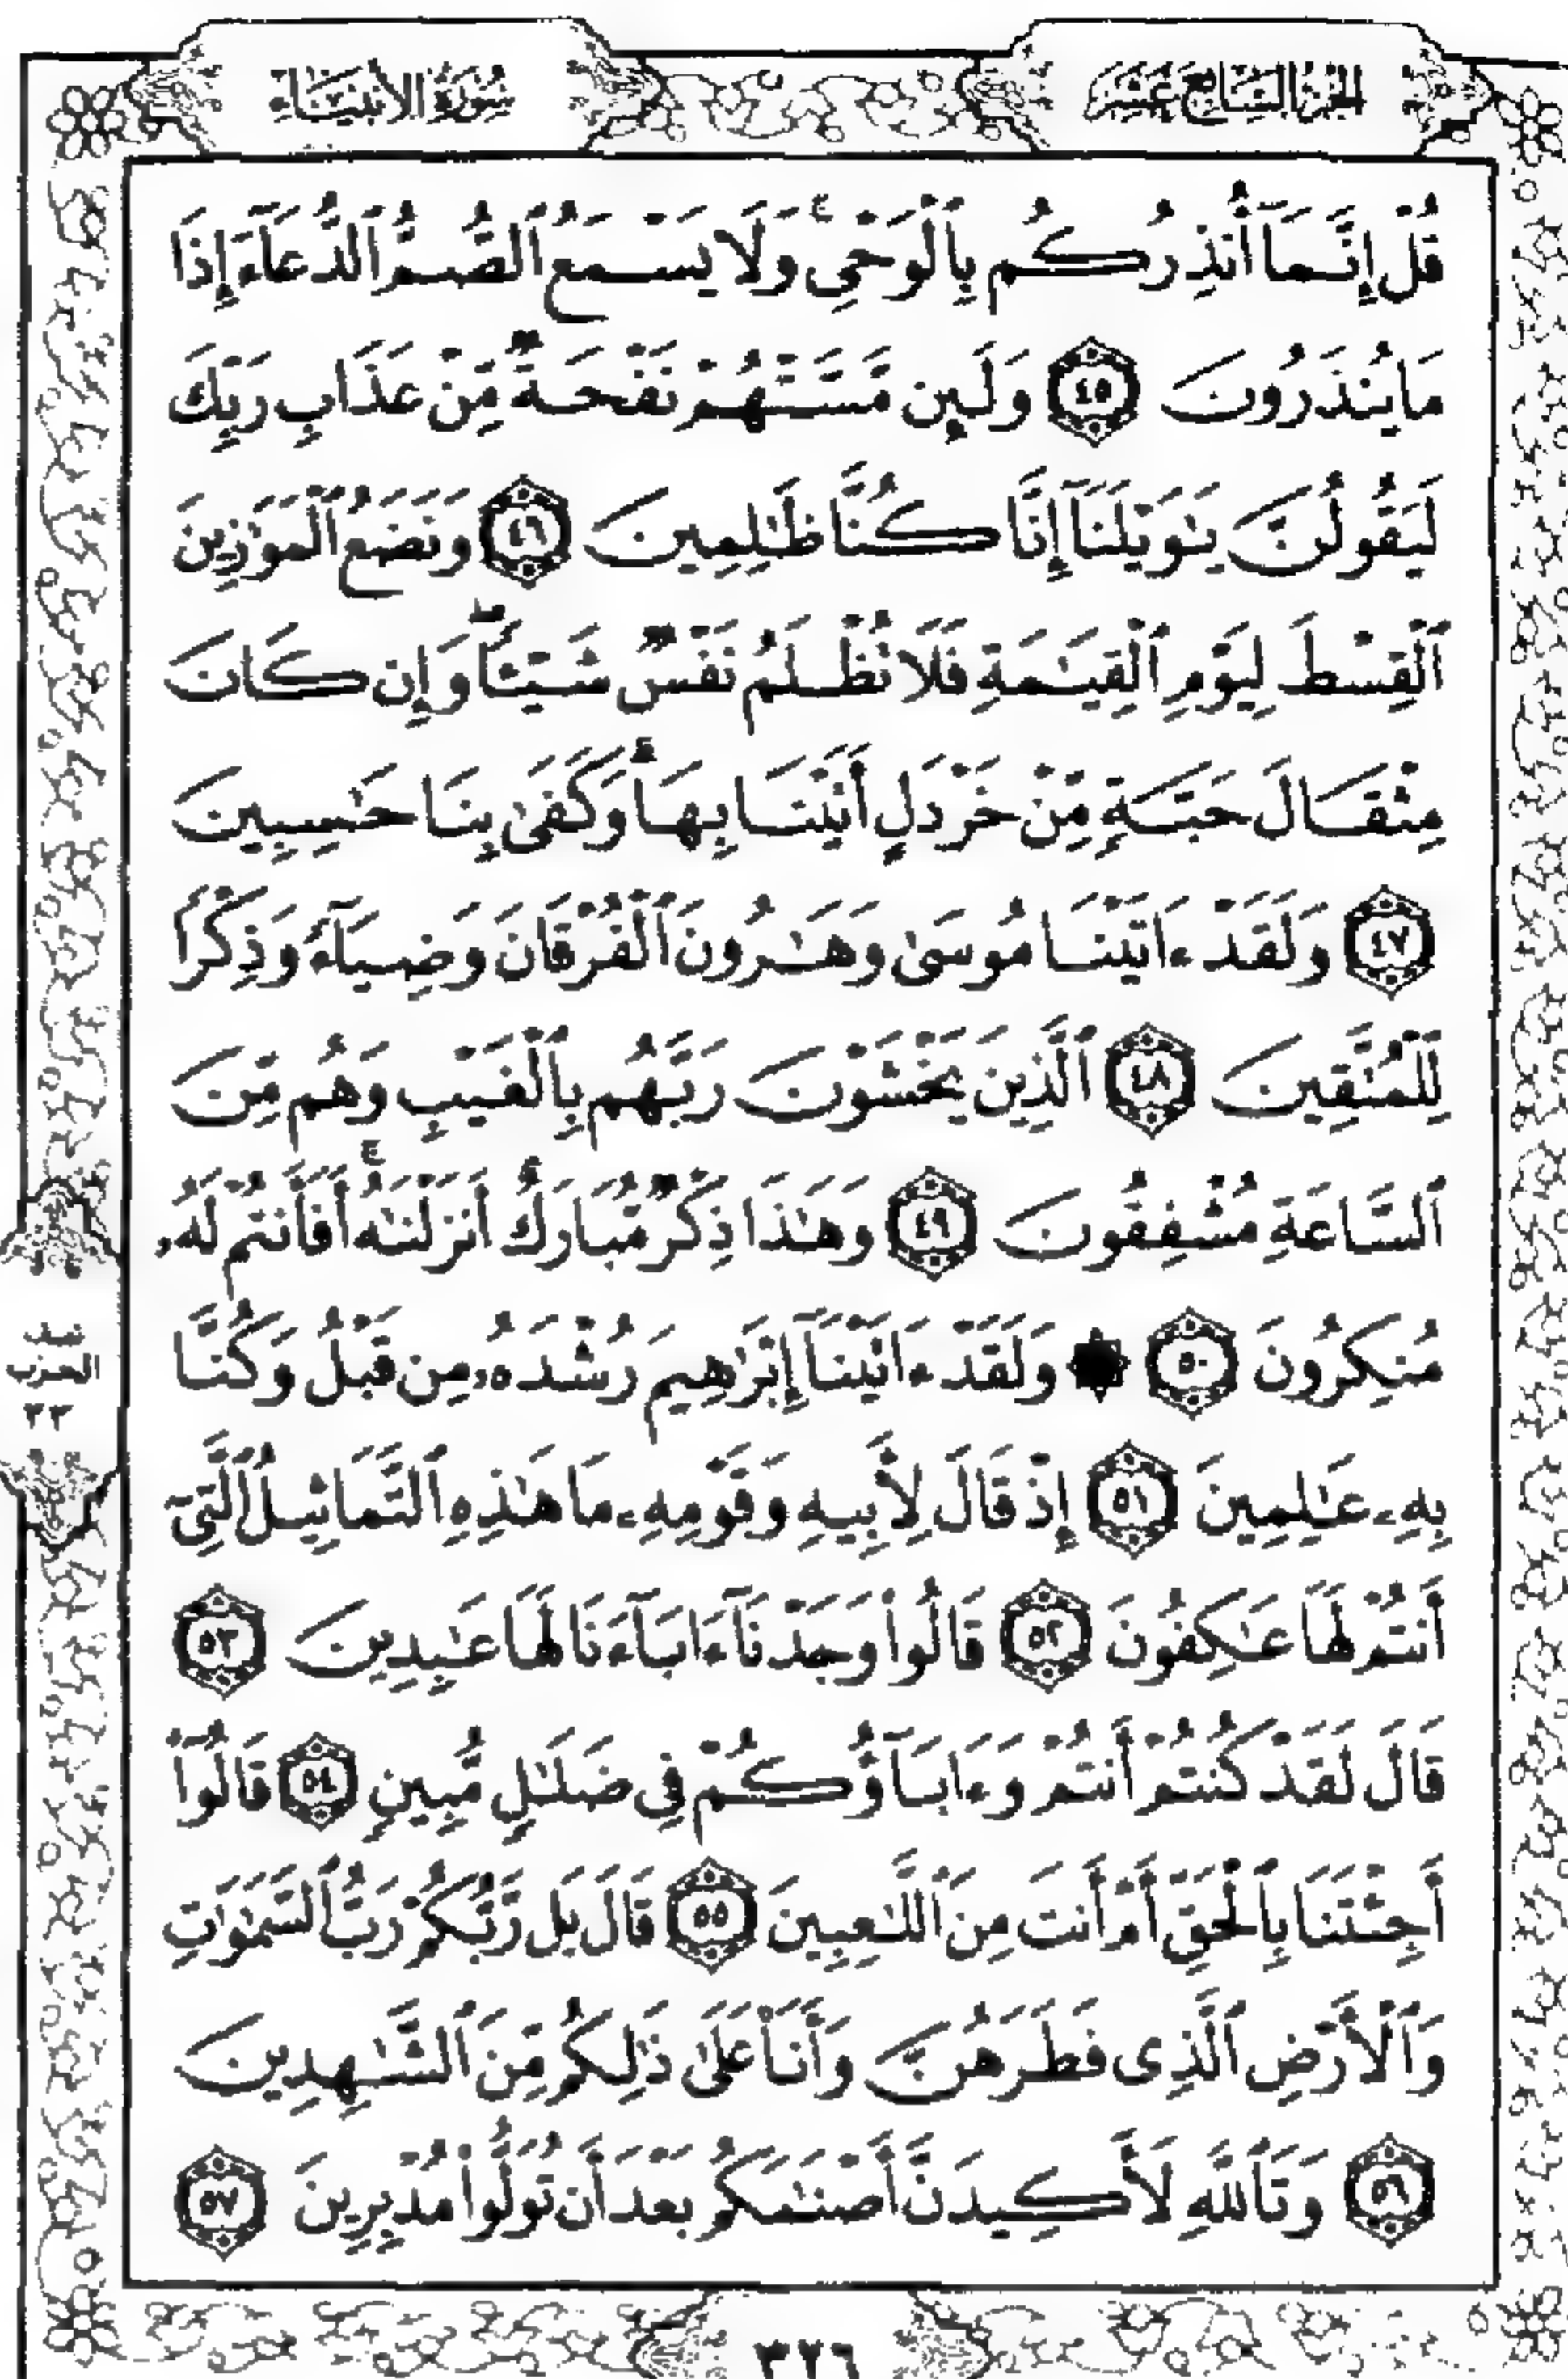 الجزء السابع عشر
سورة الأنبياء
قُلْ إِنَّمَآ أُنذِرُكُم بِٱلْوَحْىِ ۚ وَلَا يَسْمَعُ ٱلصُّمُّ ٱلدُّعَآءَ إِذَا
مَا يُنذَرُونَ ٤٥ وَلَئِن مَّسَّتْهُمْ نَفْحَةٌ مِّنْ عَذَابِ رَبِّكَ
لَيَقُولُنَّ يَٰوَيْلَنَآ إِنَّا كُنَّا ظَٰلِمِينَ ٤٦ وَنَضَعُ ٱلْمَوَٰزِينَ
ٱلْقِسْطَ لِيَوْمِ ٱلْقِيَٰمَةِ فَلَا تُظْلَمُ نَفْسٌ شَيْـًٔا ۖ وَإِن كَانَ
مِثْقَالَ حَبَّةٍ مِّنْ خَرْدَلٍ أَتَيْنَا بِهَا ۗ وَكَفَىٰ بِنَا حَٰسِبِينَ
٤٧ وَلَقَدْ ءَاتَيْنَا مُوسَىٰ وَهَٰرُونَ ٱلْفُرْقَانَ وَضِيَآءً وَذِكْرًا
لِّلْمُتَّقِينَ ٤٨ ٱلَّذِينَ يَخْشَوْنَ رَبَّهُم بِٱلْغَيْبِ وَهُم مِّنَ
ٱلسَّاعَةِ مُشْفِقُونَ ٤٩ وَهَٰذَا ذِكْرٌ مُّبَارَكٌ أَنزَلْنَٰهُ ۚ أَفَأَنتُمْ لَهُۥ
مُنكِرُونَ ٥٠ ۞ وَلَقَدْ ءَاتَيْنَآ إِبْرَٰهِيمَ رُشْدَهُۥ مِن قَبْلُ وَكُنَّا
بِهِۦ عَٰلِمِينَ ٥١ إِذْ قَالَ لِأَبِيهِ وَقَوْمِهِۦ مَا هَٰذِهِ ٱلتَّمَاثِيلُ ٱلَّتِىٓ
أَنتُمْ لَهَا عَٰكِفُونَ ٥٢ قَالُوا۟ وَجَدْنَآ ءَابَآءَنَا لَهَا عَٰبِدِينَ ٥٣
قَالَ لَقَدْ كُنتُمْ أَنتُمْ وَءَابَآؤُكُمْ فِى ضَلَٰلٍ مُّبِينٍ ٥٤ قَالُوٓا۟
أَجِئْتَنَا بِٱلْحَقِّ أَمْ أَنتَ مِنَ ٱللَّٰعِبِينَ ٥٥ قَالَ بَل رَّبُّكُمْ رَبُّ ٱلسَّمَٰوَٰتِ
وَٱلْأَرْضِ ٱلَّذِى فَطَرَهُنَّ وَأَنَا۠ عَلَىٰ ذَٰلِكُم مِّنَ ٱلشَّٰهِدِينَ
٥٦ وَتَٱللَّهِ لَأَكِيدَنَّ أَصْنَٰمَكُم بَعْدَ أَن تُوَلُّوا۟ مُدْبِرِينَ ٥٧
الحزب
٣٣
٣٢٦